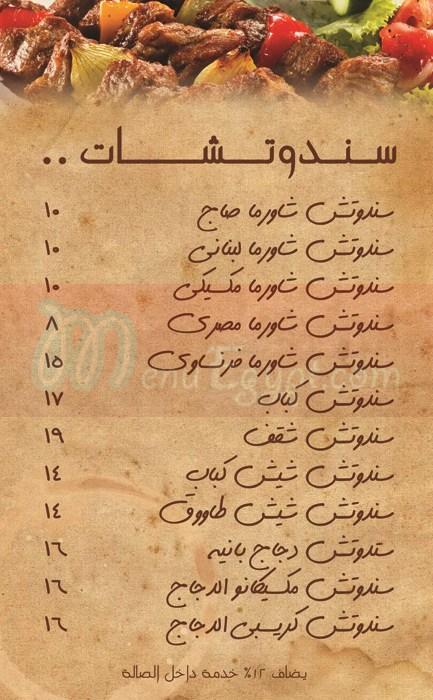 سندوتشات ..
سندوتش شاورما صاج ١٠
سندوتش شاورما لبنانى ١٠
سندوتش شاورما مكسيكى ١٠
سندوتش شاورما مصرى ٨
سندوتش شاورما فرنساوى ١٥
سندوتش كباب ١٧
سندوتش شقف ١٩
سندوتش شيش كباب ١٤
سندوتش شيش طاووق ١٤
ستدوتش دجاج بانيه ١٦
سندوتش مكسيكانو الدجاج ١٦
سندوتش كريسبى الدجاج ١٦
يضاف ١٢% خدمة داخل الصالة
Menu Egypt.com